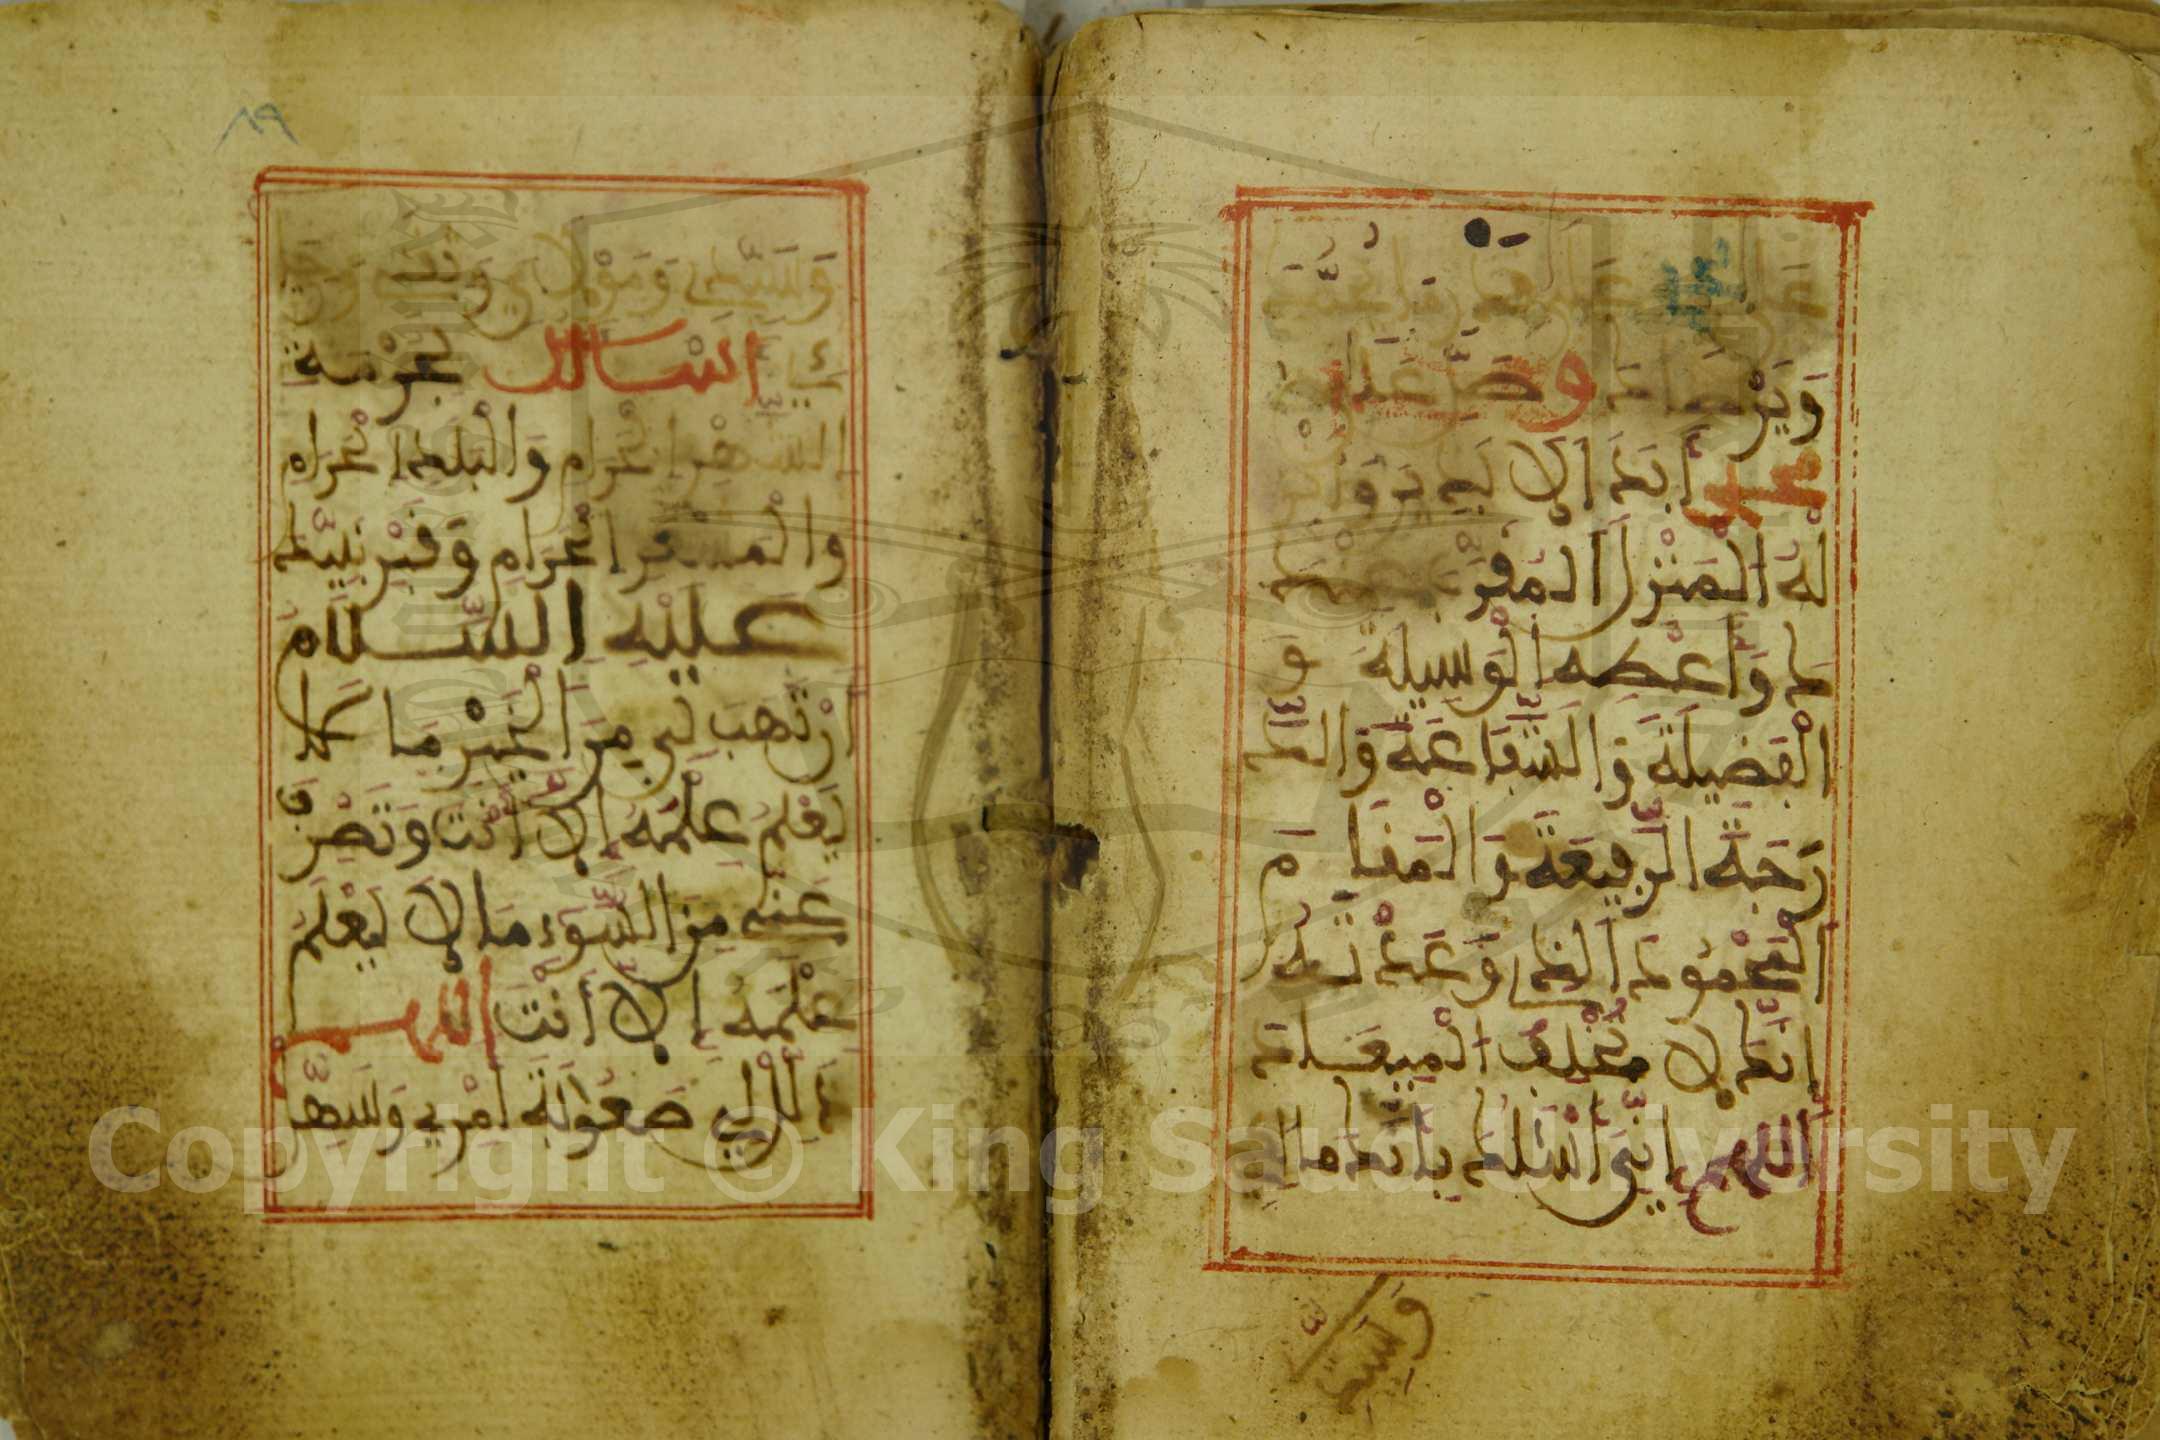 وَيَرْضَاهُ وَصَلِّ عَلَى
مُحَمَّدٍ أَبَدًا
لَهُ الْمَنْزِلَ الْمُقَرَّبَ عِنْدَ
كَ وَأَعْطِهِ الْوَسِيلَةَ وَ
الْفَضِيلَةَ وَالشَّفَاعَةَ وَالدَّ
رَجَةَ الرَّفِيعَةَ وَالْمَقَامَ
الْمَحْمُودَ الَّذِي وَعَدْتَهُ
إِنَّكَ لَا تُخْلِفُ الْمِيعَادَ
اللَّهُمَّ إِنِّي أَسْأَلُكَ بِأَنَّكَ مَالِكِي
وَسَيِّدِي
٨٩
وَسَيِّدِي وَمَوْلَايَ وَثِقَتِي وَرَجَ
ائِي أَسْأَلُكَ بِحُرْمَةِ
الشَّهْرِ الْحَرَامِ وَالْبَلَدِ الْحَرَامِ
وَالْمَشْعَرِ الْحَرَامِ وَقَبْرِ نَبِيِّكَ
عَلَيْهِ السَّلَامُ
أَنْ تَهَبَ لِي مِنَ الْخَيْرِ مَا لَا
يَعْلَمُ عِلْمَهُ إِلَّا أَنْتَ وَتَصْرِفَ
عَنِّي مِنَ السُّوءِ مَا لَا يَعْلَمُ
عِلْمَهُ إِلَّا أَنْتَ اللهم
ذَلِّلْ لِي صُعُوبَةَ أَمْرِي وَسَهِّلْ
Copyright © King Saud University